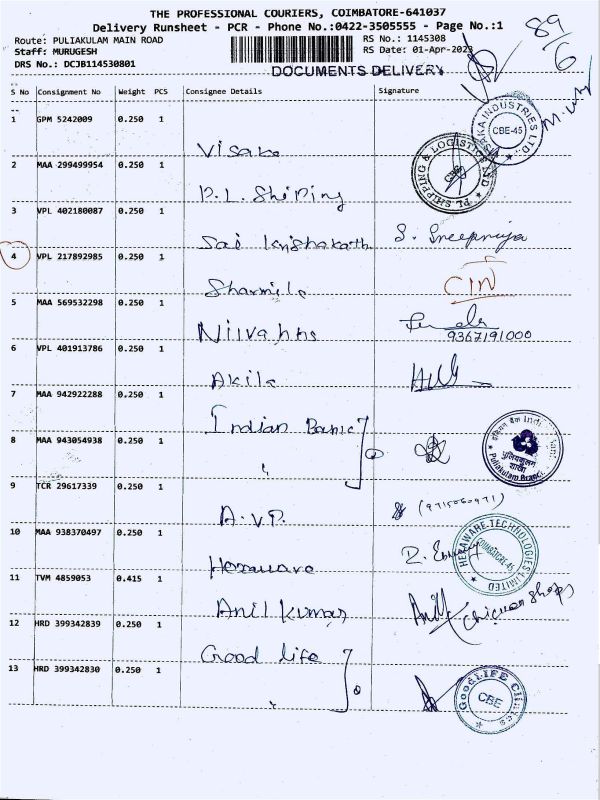 THE PROFESSIONAL COURIERS, COIMBATORE-641037
Delivery Runsheet - PCR - Phone No.:0422-3505555 - Page No.:1
Route: PULIAKULAM MAIN ROAD
RS No.: 1145308
Staff: MURUGESH
RS Date: 01-Apr-2023
DRS No.: DCJB114530801
DOCUMENTS DELIVERY
89/6
S No Consignment No Weight PCS Consignee Details Signature
1 GPM 5242009 0.250 1
Visaka
VISAKA INDUSTRIES LTD. CBE-45
2 MAA 299499954 0.250 1
P.L. Shiping
PL SHIPPING & LOGISTICS CBE
3 VPL 402180087 0.250 1
Sai
S. Sreepriya
4 VPL 217892985 0.250 1
Sharmila
CIN
5 MAA 569532298 0.250 1
9367191000
6 VPL 401913786 0.250 1
Akila
7 MAA 942922288 0.250 1
Indian Bank
8 MAA 943054938 0.250 1
"
Puliakulam Branch
9 TCR 29617339 0.250 1
A.V.P.
(9715060971)
10 MAA 938370497 0.250 1
Hexaware
HEXAWARE TECHNOLOGIES LIMITED COIMBATORE-45
11 TVM 4859053 0.415 1
Anil Kumar
12 HRD 399342839 0.250 1
Good life
13 HRD 399342830 0.250 1
"
GoodLIFE Clinics CBE